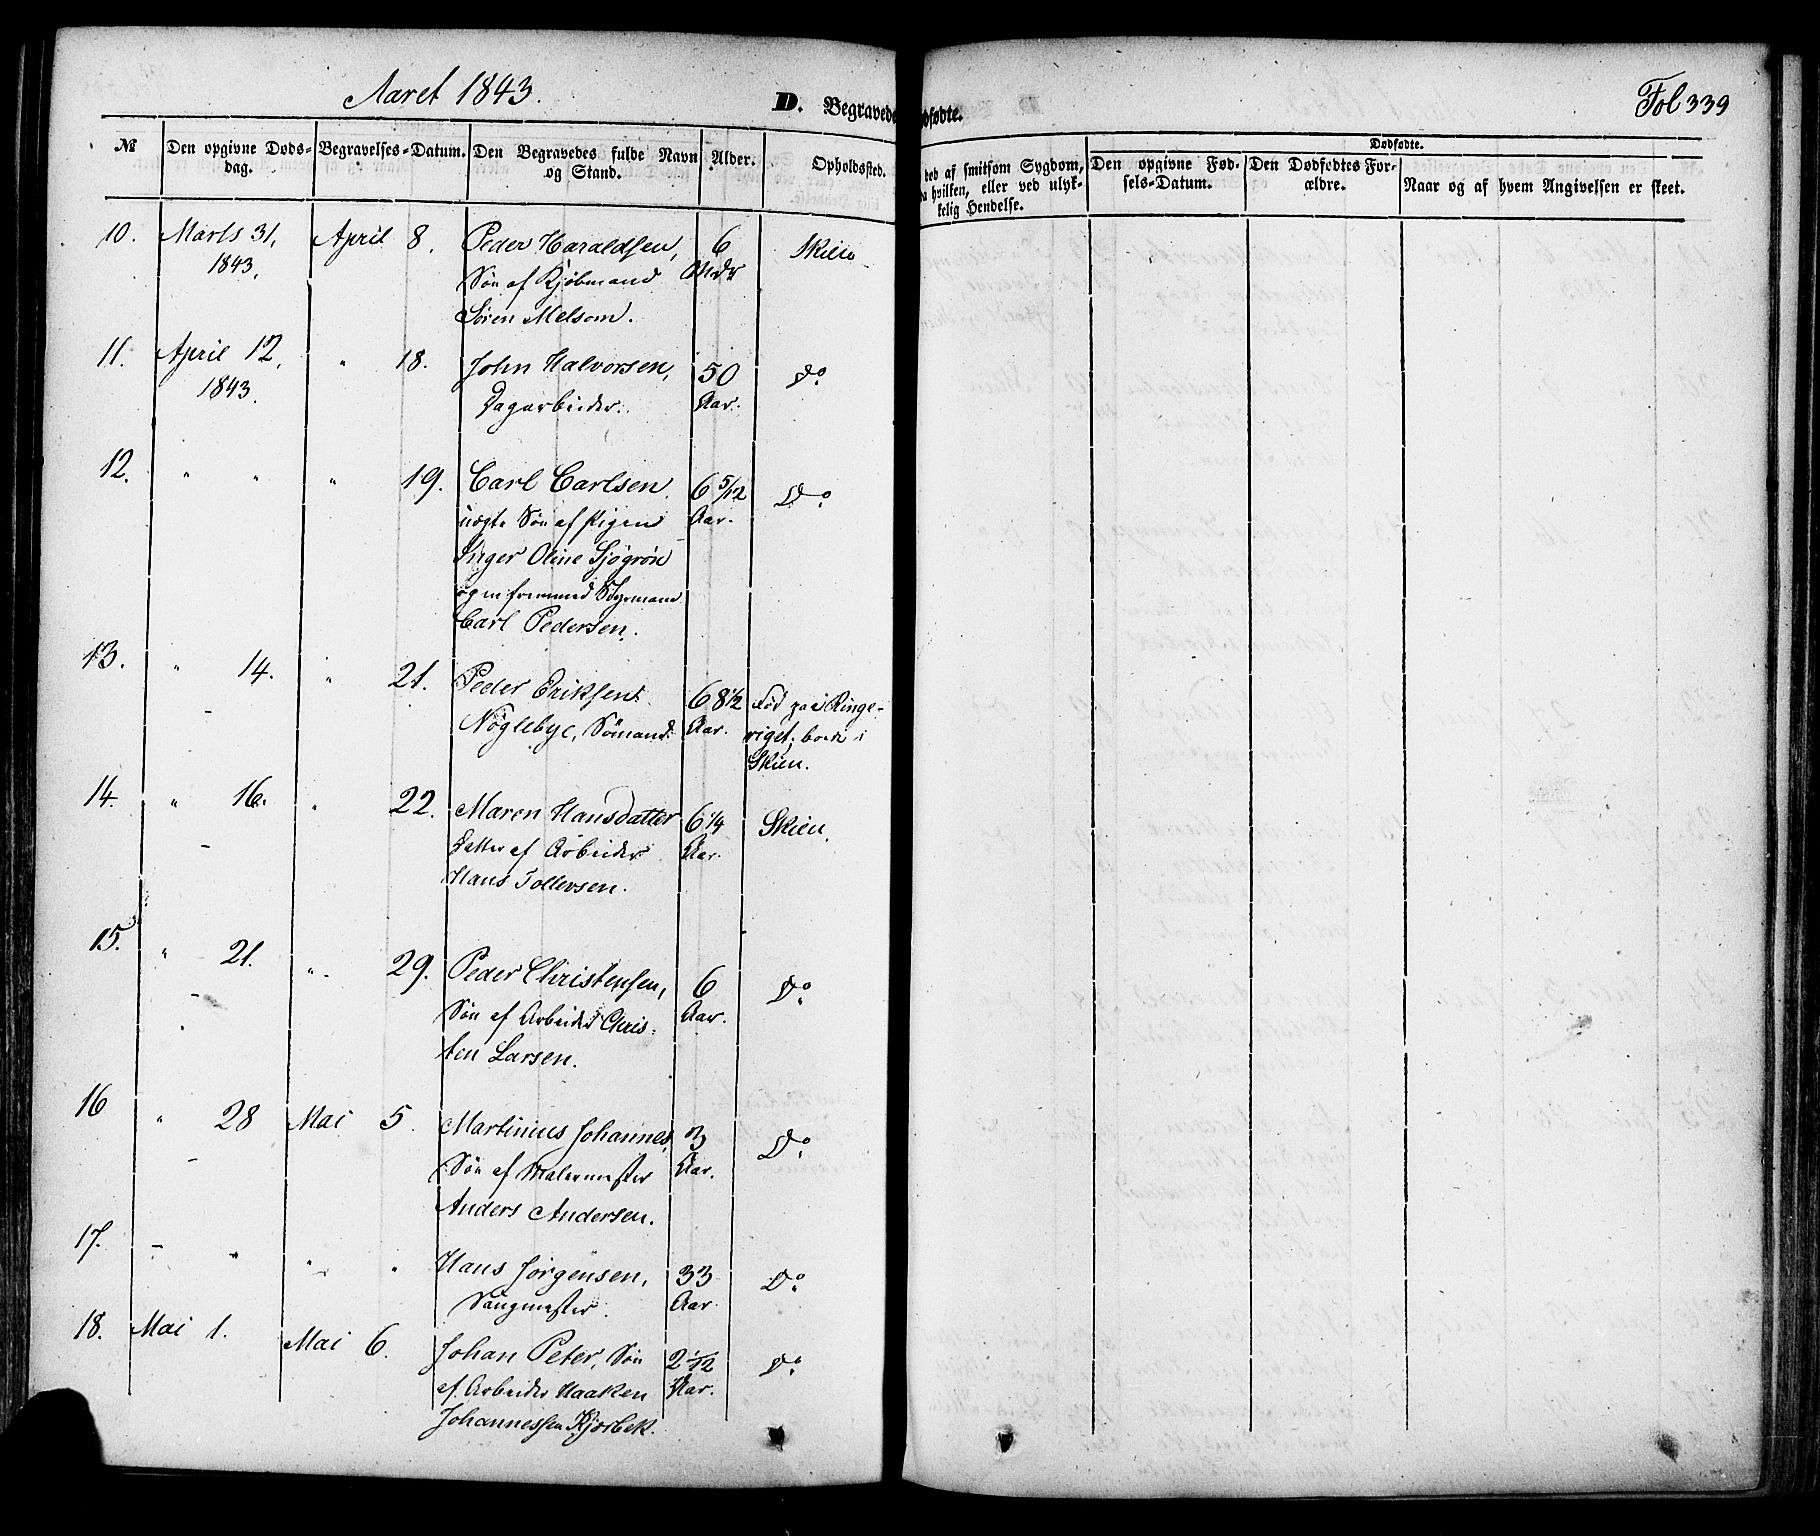 Aaret 1843.
D. Begravede
dfødte.
Fol 339
№
Den opgivne Døds-
dag.
Begravelses-Datum.
Den Begravedes fulde Navn
og Stand.
Alder.
Opholdssted.
ved af smitsom Sygdom,
hvilken, eller ved ulyk-
kelig Hendelse.
Dødfødte.
Den opgivne Fød-
sels-Datum.
Den Dødfødtes For-
ældre.
Naar og af hvem Angivelsen er skeet.
10. Marts 31, April 8. Peder Haraldsen, 6 Skien
1843, Søn af Kjøbmand Mdr
Søren Melsom.
11. April 12, " 18. John Halvorsen, 50 Do
1843. Dagarbeider. Aar.
12. " " " 19. Carl Carlsen 6 5/12 Do
uægte Søn af Pigen Aar.
Inger Oline Sjøgrøn
og en fremmed Styrmand
Carl Pedersen.
13. " 14. " 21. Peder Eriksen 68 1/2 Fød paa Ringe-
Nøglebye, Sømand. Aar. riget, boede i
Skien.
14. " 16. " 22. Maren Hansdatter 6 1/4 Skien.
Datter af Arbeider Aar.
Hans Tollevsen.
15. " 21. " 29. Peder Christensen, 6 Do
Søn af Arbeider Chris- Aar.
ten Larsen.
16 " 28 Mai 5. Martinius Johannes, 3 Do
Søn af Malermester Aar.
Anders Andersen.
17. " " " " Hans Jørgensen, 33 Do
Saugmester. Aar
18. Mai 1. Mai 6. Johan Peter, Søn 2 1/12 Do
af Arbeider Haaken Aar.
Johannessen Kjørbek.